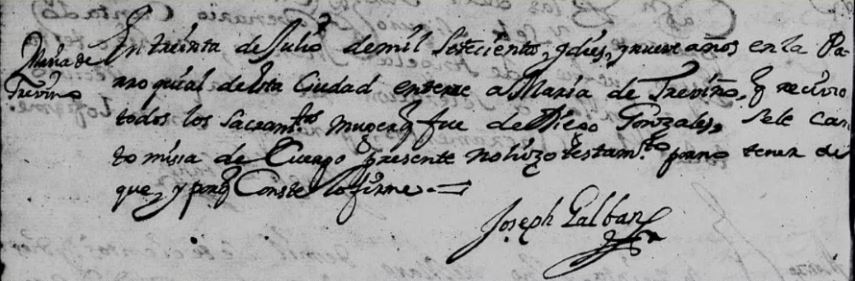 Maria de
Treviño
En treinta de Julio de mil setecientos, y dies, y nueve años en la Pa-
rroquial de esta Ciudad enterre a Maria de Treviño, q recivio
todos los Sacram.tos muger q fue de Diego Gonzales, Sele can-
to misa de Cuerpo presente no hizo testam.to por no tener de
que, y porq Conste lo firme.
Joseph Galban